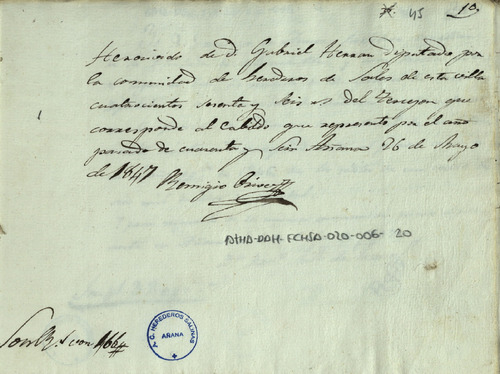 45 19
He recivido de D. Gabriel Herran Diputado por
la comunidad de herederos de Sales de esta villa
cuatrocientos sesenta y seis rs del Tercejon que
corresponde al Cabildo que represento por el año
pasado de cuarenta y seis Añana 26 de Mayo
de 1847 Remigio
ATHA-DAH-FCHSA-020-006-20
Son Rs von 466
A. C. HEREDEROS SALINAS
AÑANA